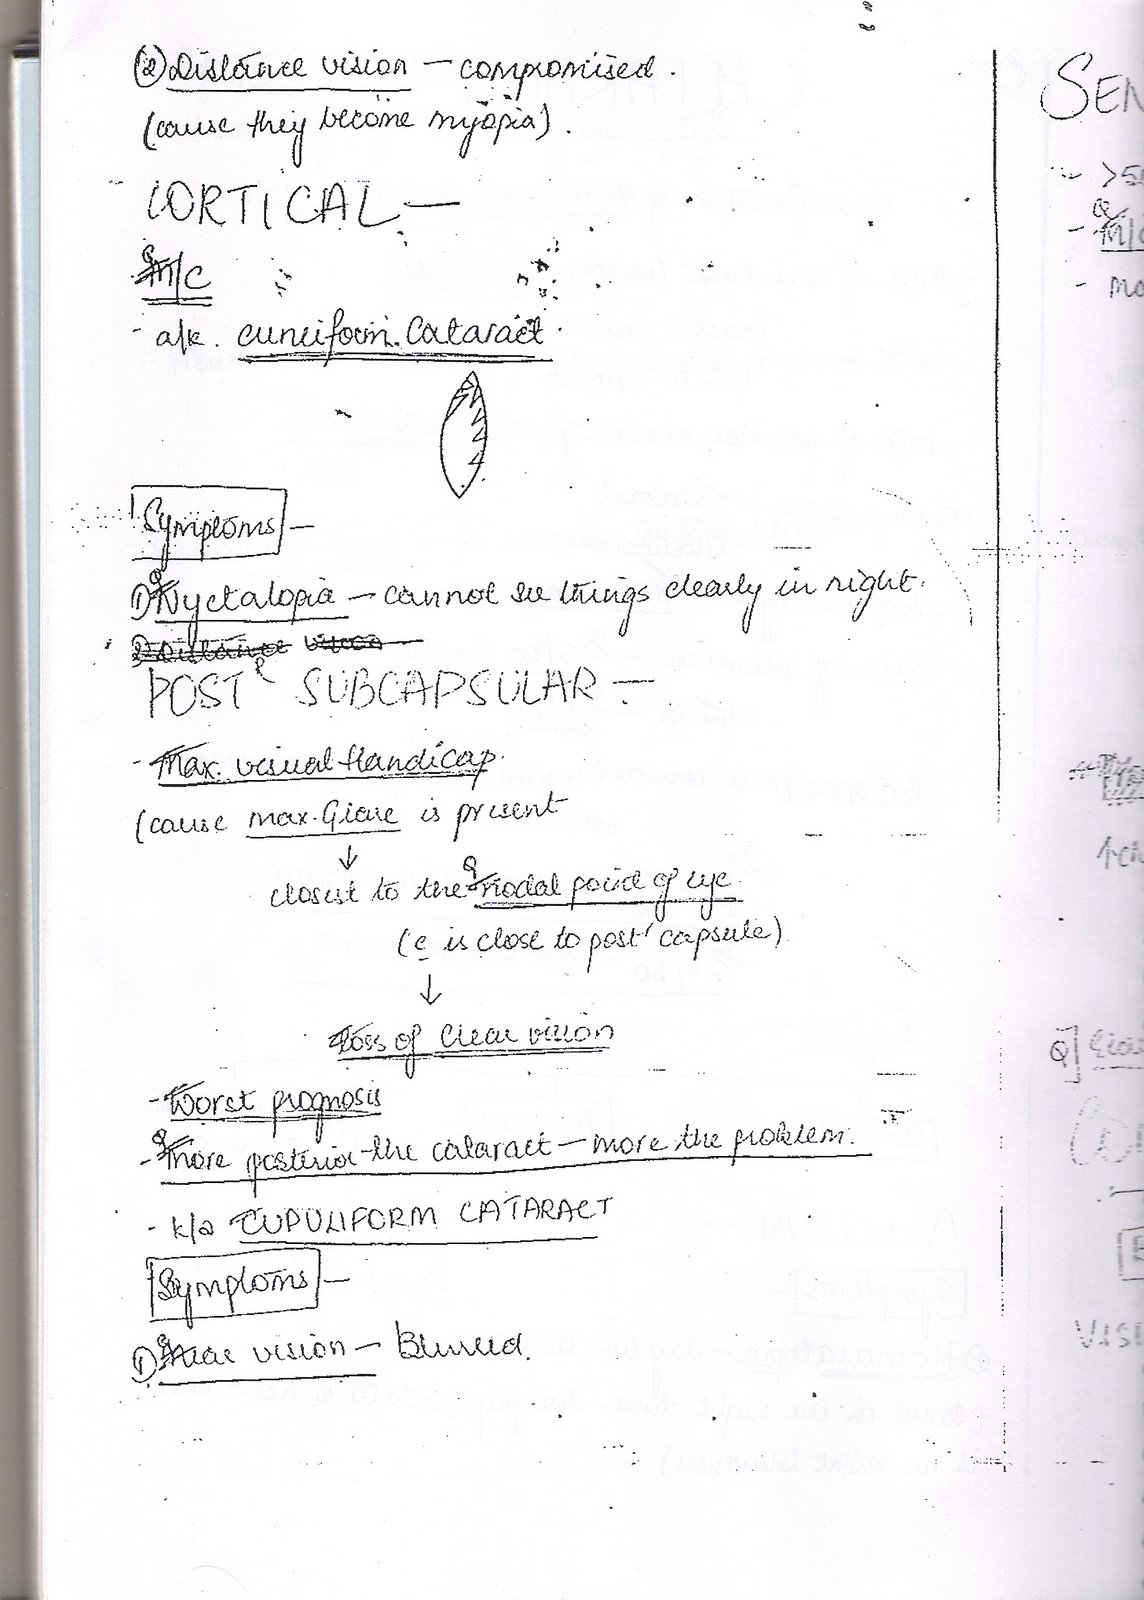 (2) Distance vision — compromised.
(cause they become myopia).
CORTICAL —
Q
M/C
- a/k. cuneiform. Cataract.
Symptoms —
Q
1) Nyctalopia — cannot see things clearly in night.
2) Distance vision —
POST' SUBCAPSULAR —
- Max. visual Handicap.
(cause max. Glare is present
↓
closest to the Q nodal point of eye.
(c is close to post' capsule)
↓
Loss of Clear vision
- Worst prognosis
Q
- More posterior the cataract — more the problem.
- k/a CUPULIFORM CATARACT
Symptoms —
Q
1) Near vision — Blurred.
SEN
- >5
Q
- M/C
- mo
Q]
VISI